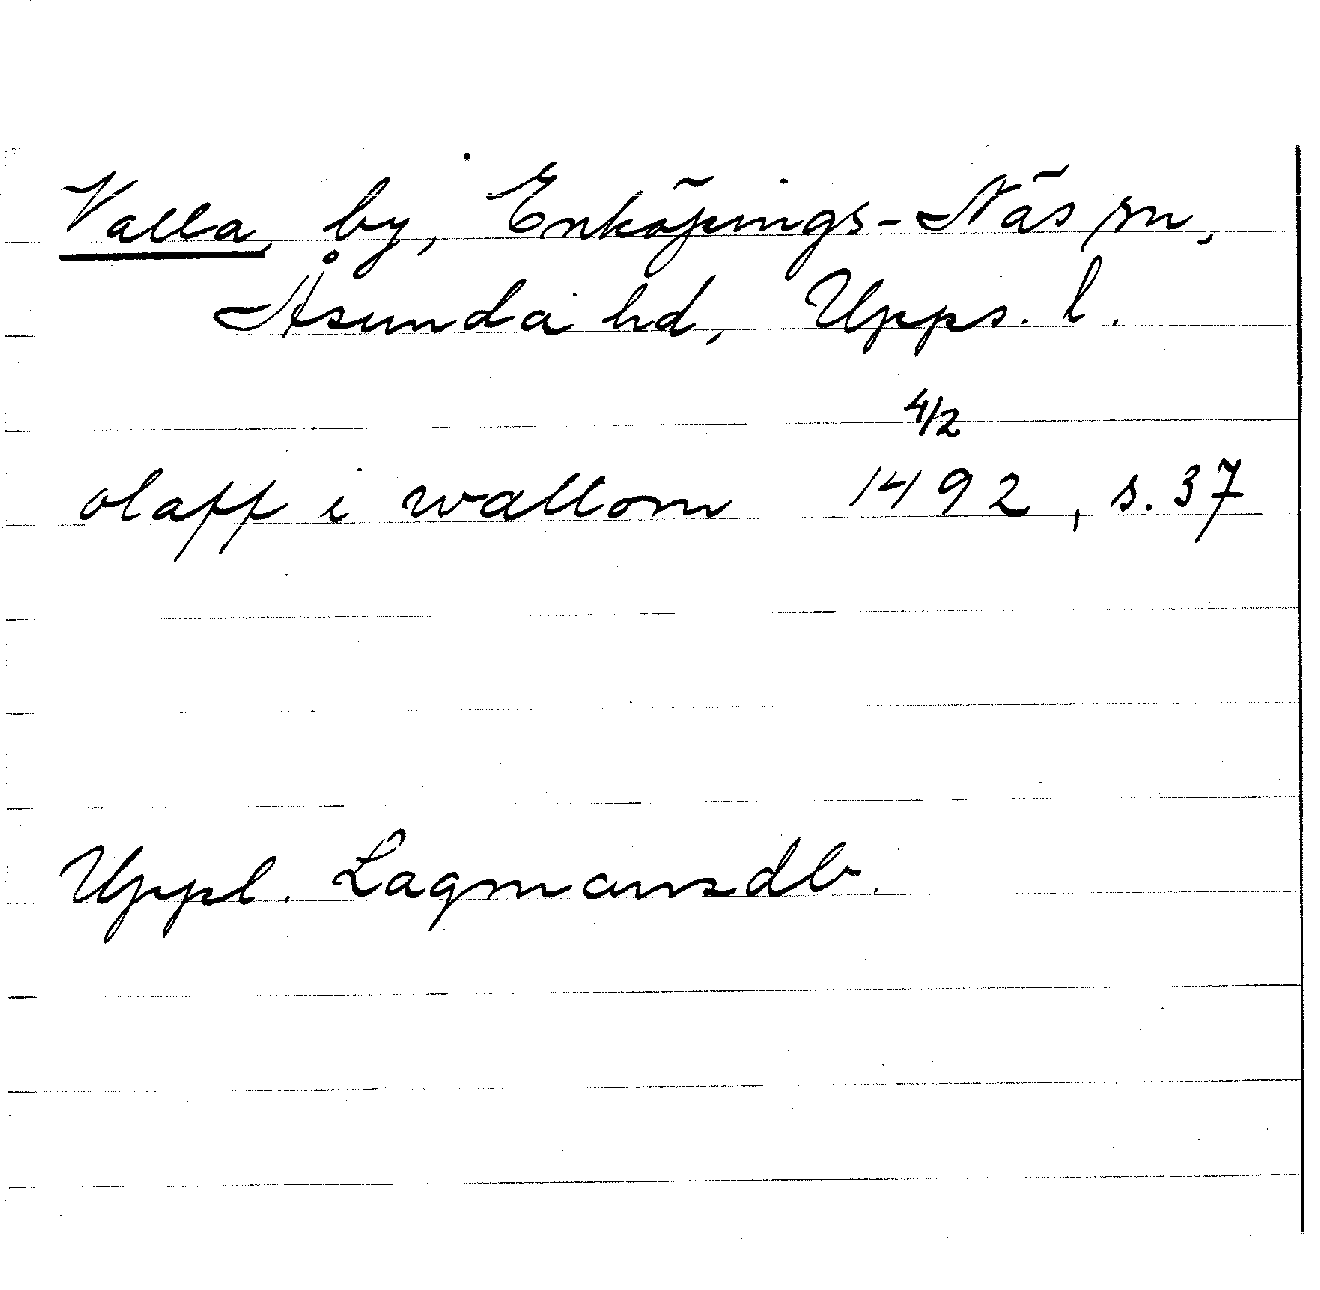 Valla, by, Enköpings-Näs sn,
Åsunda hd, Upps. l.
4/2
olaff i wallom 1492, s. 37
Uppl. Lagmansdb.